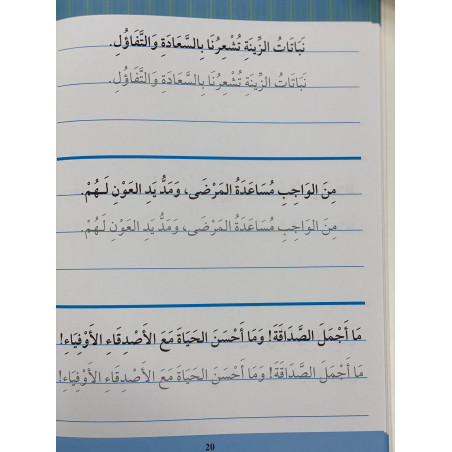 نَبَاتَاتُ الزِّينَةِ تُشْعِرُنَا بِالسَّعَادَةِ وَالتَّفَاؤُلِ.
نَبَاتَاتُ الزِّينَةِ تُشْعِرُنَا بِالسَّعَادَةِ وَالتَّفَاؤُلِ.
مِنَ الوَاجِبِ مُسَاعَدَةُ المَرْضَى، وَمَدُّ يَدِ العَوْنِ لَهُمْ.
مِنَ الوَاجِبِ مُسَاعَدَةُ المَرْضَى، وَمَدُّ يَدِ العَوْنِ لَهُمْ.
مَا أَجْمَلَ الصَّدَاقَةَ! وَمَا أَحْسَنَ الحَيَاةَ مَعَ الأَصْدِقَاءِ الأَوْفِيَاءِ!
مَا أَجْمَلَ الصَّدَاقَةَ! وَمَا أَحْسَنَ الحَيَاةَ مَعَ الأَصْدِقَاءِ الأَوْفِيَاءِ!
20